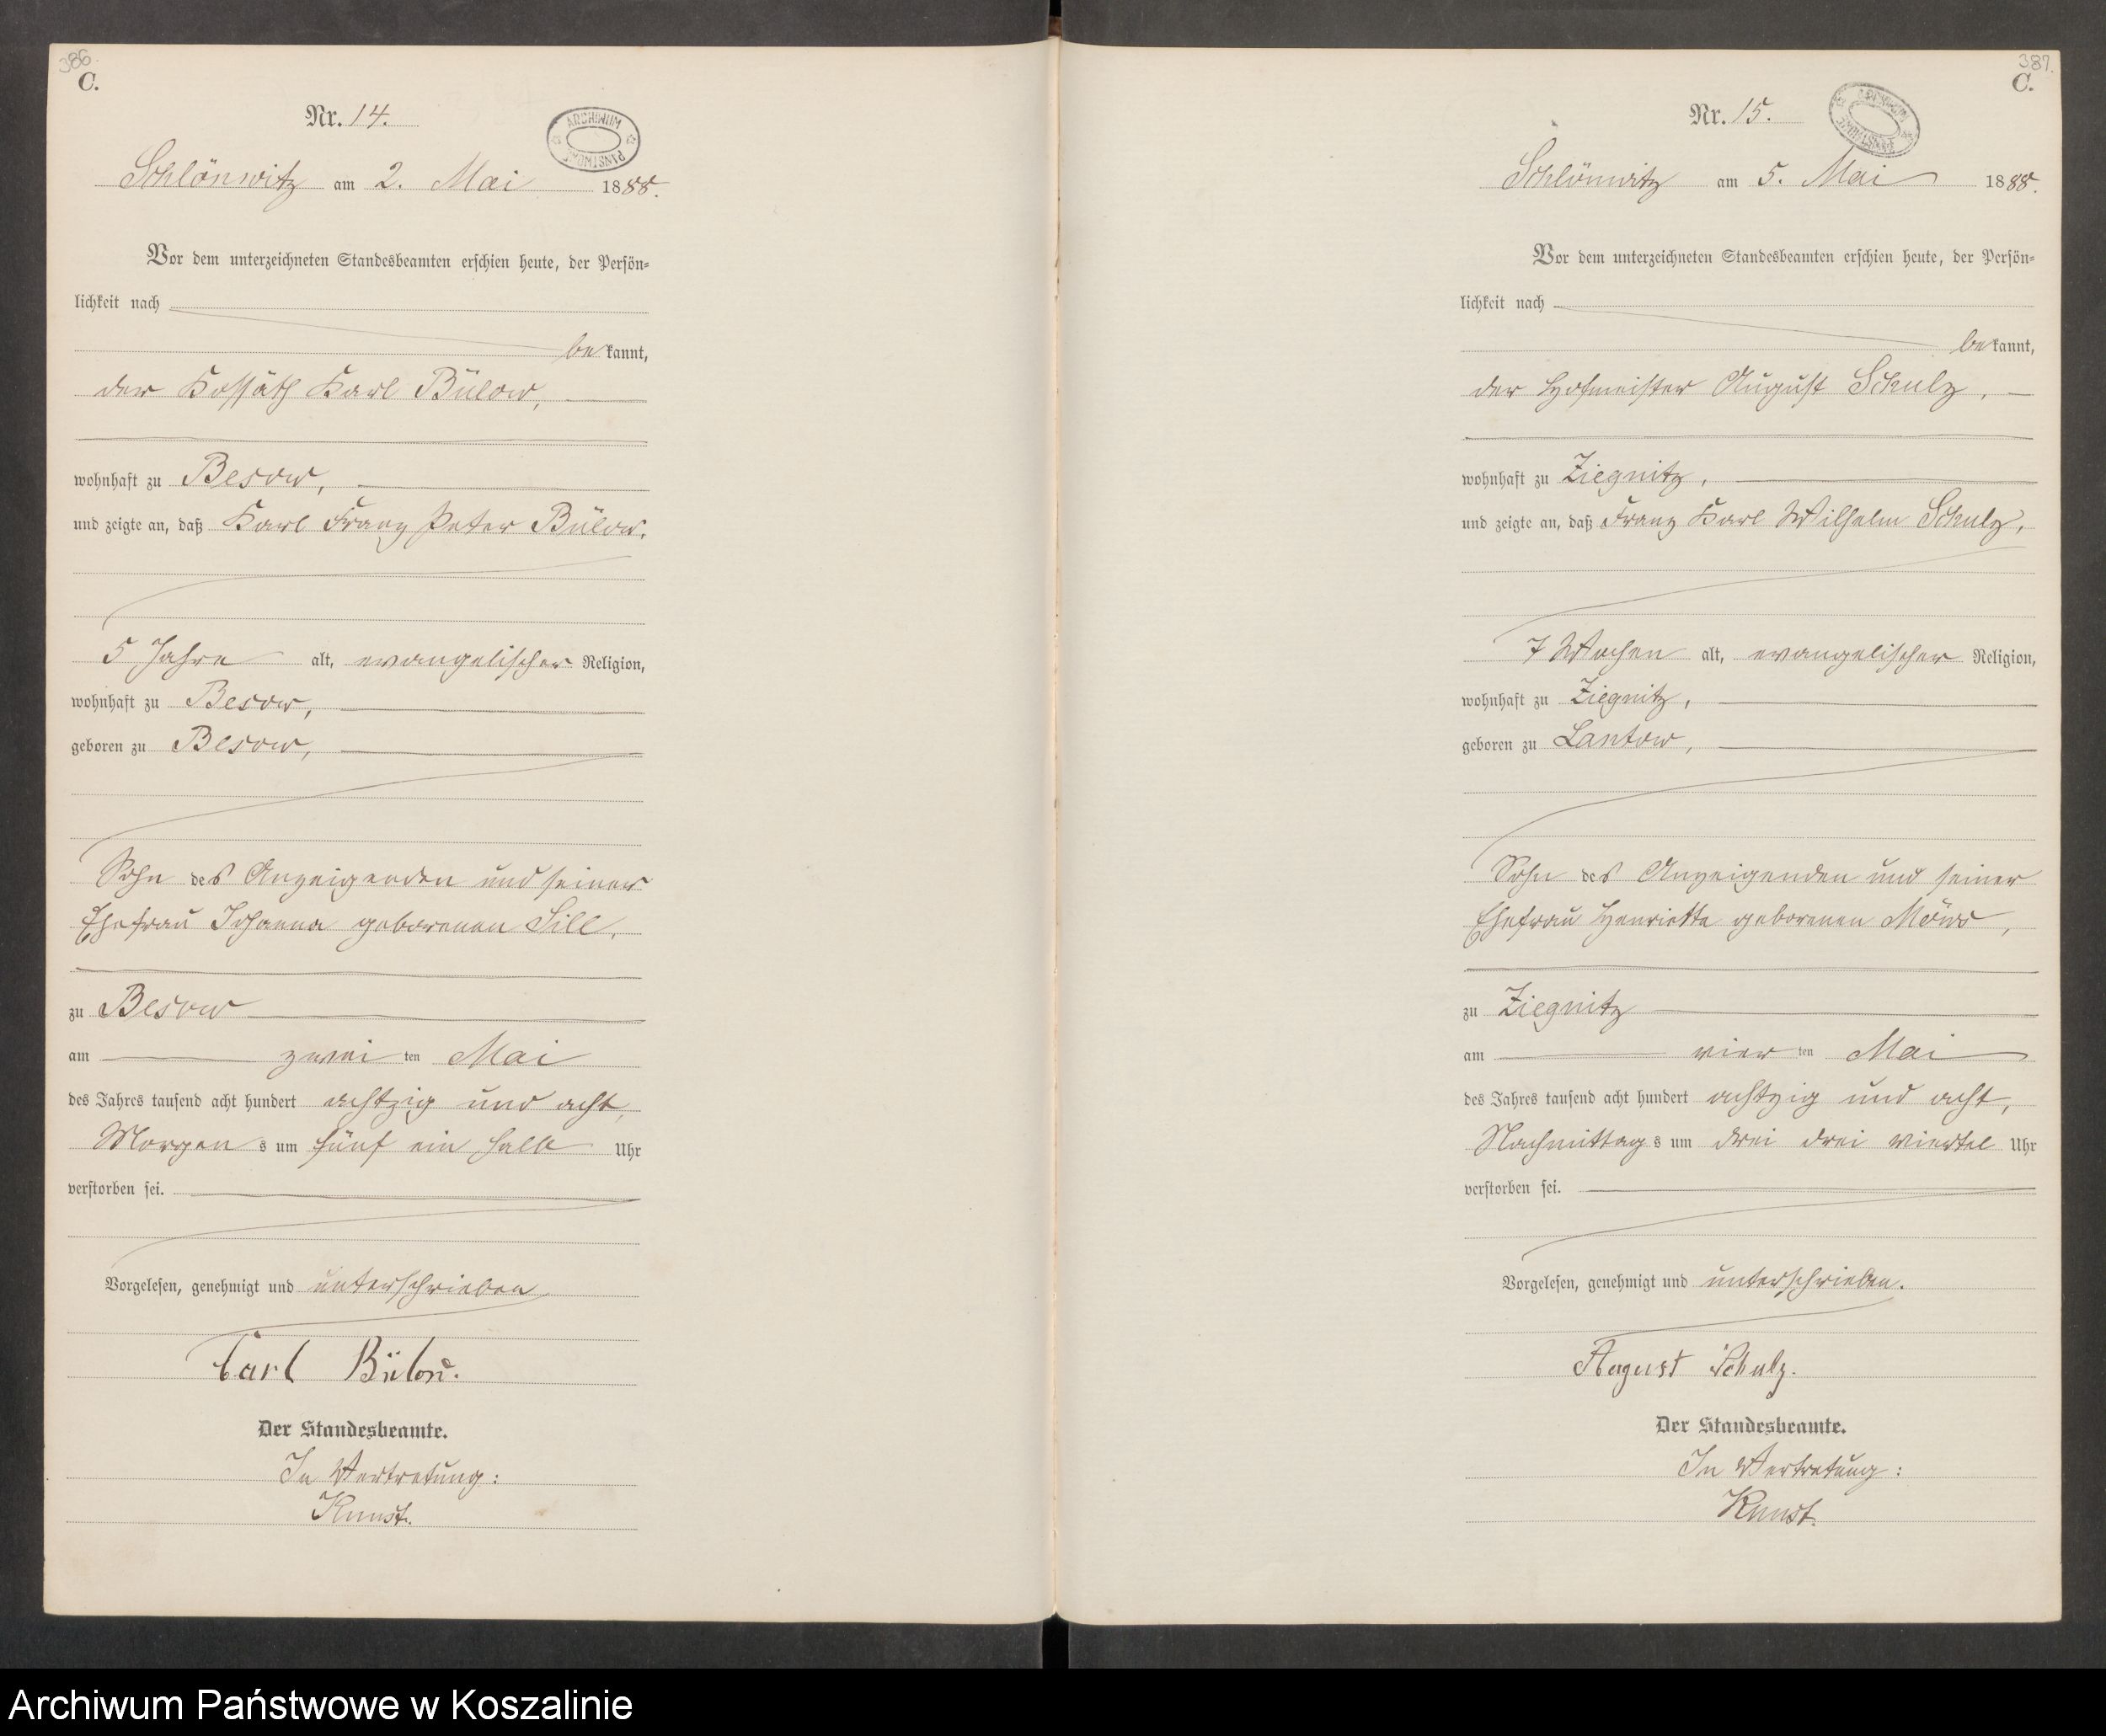 386.
C.
Nr. 14.
ARCHIWUM PAŃSTWOWE
Schlönwitz am 2. Mai 1888.
Vor dem unterzeichneten Standesbeamten erschien heute, der Persön=
lichkeit nach
bekannt,
der Kossäth Karl Bülow,
wohnhaft zu Besow,
und zeigte an, daß Karl Franz Peter Bülow,
5 Jahre alt, evangelischer Religion,
wohnhaft zu Besow,
geboren zu Besow,
Sohn des Anzeigenden und seiner
Ehefrau Johanna geborenen Sill,
zu Besow
am zweiten Mai
des Jahres tausend acht hundert achtzig und acht,
Morgens um fünf ein halb Uhr
verstorben sei.
Vorgelesen, genehmigt und unterschrieben
Carl Bülow.
Der Standesbeamte.
In Vertretung:
Kunst.
387.
C.
Nr. 15.
ARCHIWUM PAŃSTWOWE
Schlönwitz am 5. Mai 1888.
Vor dem unterzeichneten Standesbeamten erschien heute, der Persön=
lichkeit nach
bekannt,
der Hofmeister August Schulz,
wohnhaft zu Ziegnitz,
und zeigte an, daß Franz Karl Wilhelm Schulz,
7 Wochen alt, evangelischer Religion,
wohnhaft zu Ziegnitz,
geboren zu Lantow,
Sohn des Anzeigenden und seiner
Ehefrau Henriette geborenen
zu Ziegnitz
am vierten Mai
des Jahres tausend acht hundert achtzig und acht,
Nachmittags um drei drei viertel Uhr
verstorben sei.
Vorgelesen, genehmigt und unterschrieben.
August Schulz.
Der Standesbeamte.
In Vertretung:
Kunst.
Archiwum Państwowe w Koszalinie